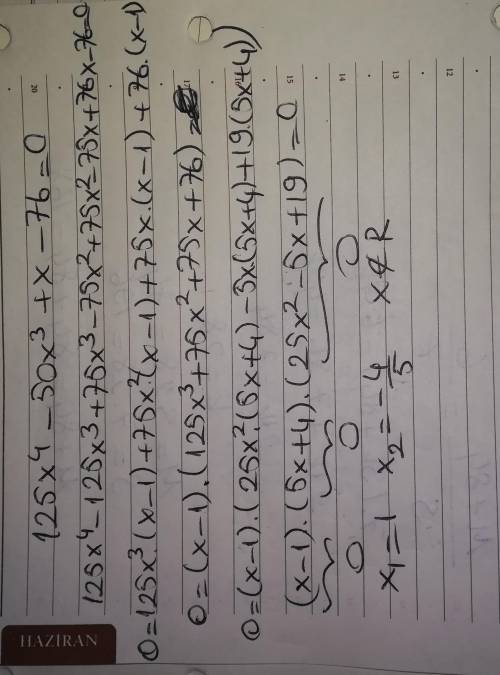 125x⁴-50x³+x-76=0
125x⁴-125x³+75x³-75x²+75x²-75x+76x-76=0
0=125x³.(x-1)+75x²(x-1)+75x.(x-1)+76.(x-1)
0=(x-1).(125x³+75x²+75x+76)=
0=(x-1).(25x².(5x+4)-5x(5x+4)+19.(5x+4))
(x-1).(5x+4).(25x²-5x+19)=0
0 0 0
x₁=1 x₂=-4/5 x∉R
HAZİRAN
12
13
14
15
17
20